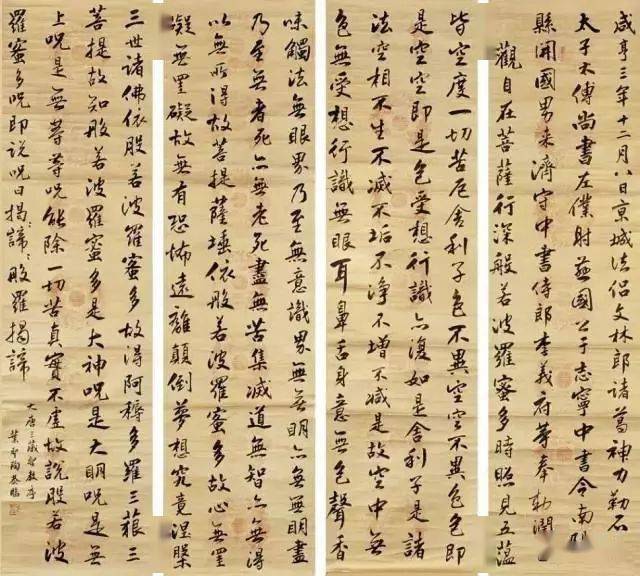 咸亨三年十二月八日京城法侣文林郎諸葛神力勒石
太子太傅尚書左僕射燕國公于志寧中書令南
縣開國男来濟守中書侍郎李義府等奉勅潤
觀自在菩薩行深般若波羅蜜多時照見五蕴
皆空度一切苦厄舍利子色不異空空不異色色即
是空空即是色受想行識亦復如是舍利子是諸
法空相不生不滅不垢不净不增不減是故空中無
色無受想行識無眼耳鼻舌身意無色聲香
味觸法無眼界乃至無意識界無無明亦無無明盡
乃至無老死亦無老死盡無苦集滅道無智亦無得
以無所得故菩提薩埵依般若波羅蜜多故心無罣
礙無罣礙故無有恐怖遠離顛倒夢想究竟涅槃
三世諸佛依般若波羅蜜多故得阿耨多羅三藐三
菩提故知般若波羅蜜多是大神呪是大明呪是無
上呪是無等等呪能除一切苦真實不虛故說般若波
羅蜜多呪即說呪曰揭:諦:般羅揭諦
大唐三藏聖教序
葉聖陶恭臨